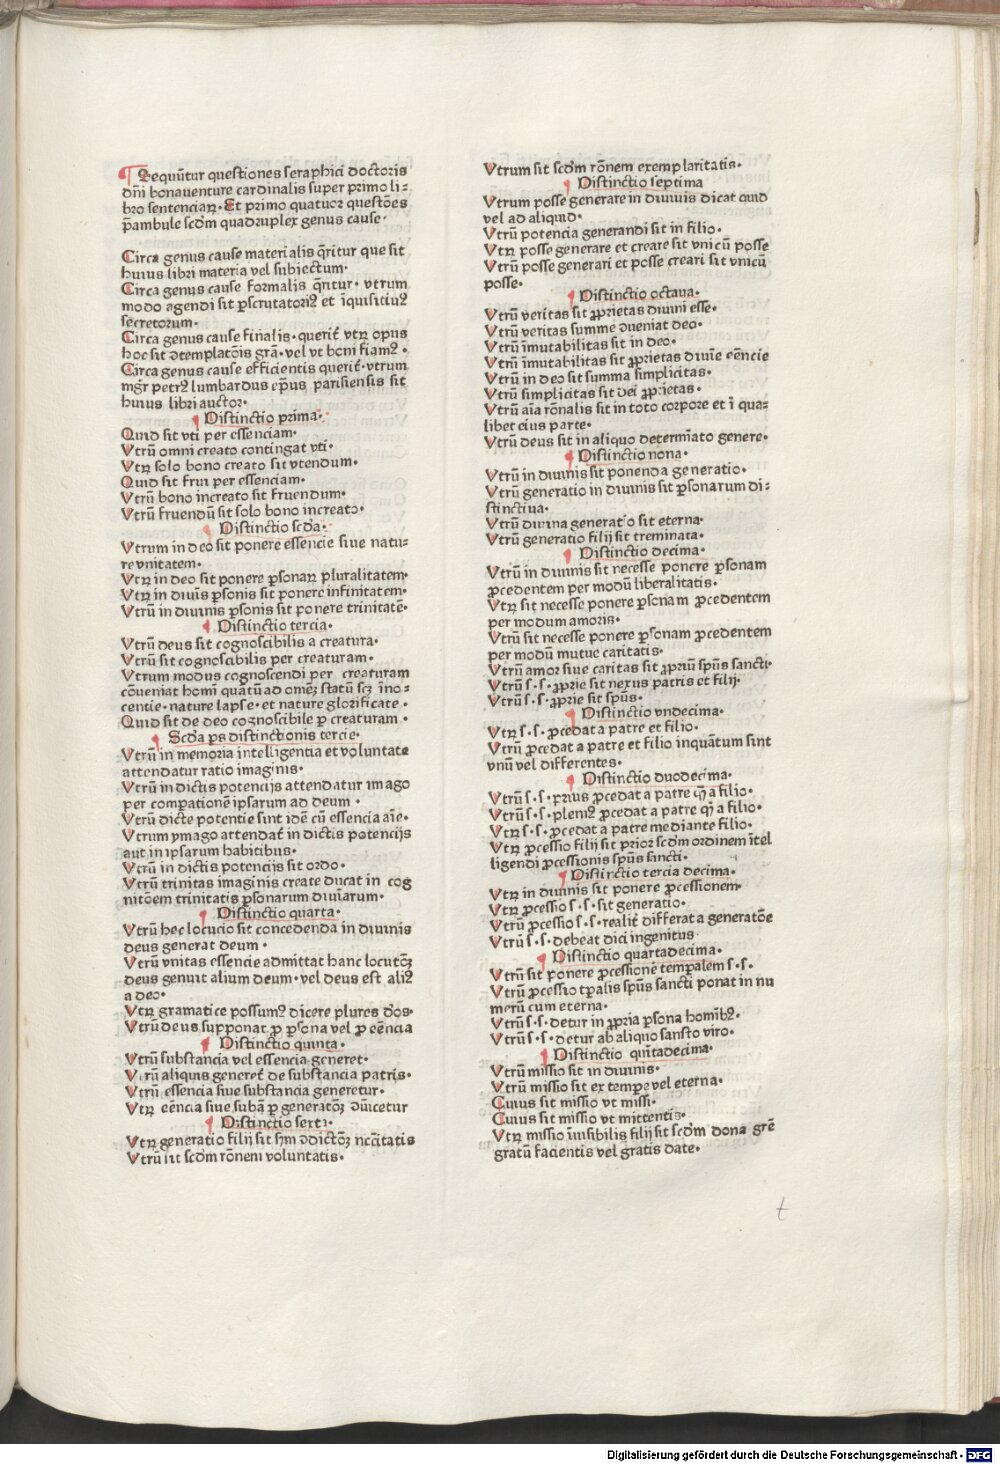 ¶ Sequūtur questiones seraphici doctoris
dn̄i bonauenture cardinalis super primo li⸗
bro sentenciaꝝ. Et primo quatuor questōes
p̄ambule scd̄m quadruplex genus cause·
Circa genus cause materialis q̄ritur que sit
huius libri materia vel subiectum·
Circa genus cause formalis q̄ritur· vtrum
modo agendi sit ꝑscrutatoriꝰ et īquisitiuꝰ
secretorum·
Circa genus cause finalis· querit᷑ vtꝝ opus
hoc sit ↄtemplatōis gr̄a· vel vt boni fiamꝰ·
Circa genus cause efficientis querit᷑· vtrum
mgr̄ petrꝰ lumbardus ep̄us parisiensis sit
huius libri auctor·
¶ Distinctio prima·
Quid sit vti per essenciam·
Vtrū omni creato contingat vti·
Vtꝝ solo bono creato sit vtendum·
Quid sit frui per essenciam·
Vtrū bono increato sit fruendum·
Vtrū fruendū sit solo bono increato·
¶ Distinctio scd̄a·
Vtrum in deo sit ponere essencie siue natu⸗
re vnitatem·
Vtꝝ in deo sit ponere ꝑsonaꝝ pluralitatem·
Vtꝝ in diuīs ꝑsonis sit ponere infinitatem·
Vtrū in diuinis ꝑsonis sit ponere trinitatē·
¶ Distinctio tercia·
Vtrū deus sit cognoscibilis a creatura·
Vtrū sit cognoscibilis per creaturam·
Vtrum modus cognoscendi per creaturam
cōueniat homī quātū ad omēꝫ statū scꝫ īno⸗
centie· nature lapse· et nature glorificate·
Quid sit de deo cognoscibile ꝑ creaturam·
¶ Scd̄a ꝑs distinctionis tercie·
Vtrū in memoria intelligentia et voluntate
attendatur ratio imaginis·
Vtrū in dictis potencijs attendatur imago
per compationē ipsarum ad deum·
Vtrū dicte potentie sint idē cū essencia aīe·
Vtrum ymago attendat᷑ in dictis potencijs
aut in ipsarum habitibus·
Vtrū in dictis potencijs sit ordo·
Vtrū trinitas imaginis create ducat in cog
nitōem trinitatis ꝑsonarum diuīarum·
¶ Distinctio quarta·
Vtrū hec locucio sit concedenda in diuinis
deus generat deum·
Vtrū vnitas essencie admittat hanc locutōꝫ
deus genuit alium deum· vel deus est aliꝰ
a deo·
Vtꝝ gramatice possumꝰ dicere plures d̄os·
Vtrū deus supponat ꝓ ꝑsona vel ꝓ eēncia
¶ Distinctio quinta·
Vtrū substancia vel essencia generet·
Vtrū aliquis generet᷑ de substancia patris·
Vtrū essencia siue substancia generetur·
Vtꝝ eēncia siue subā ꝑ generatōꝫ ↄmūicetur
¶ Distinctio sexta·
Vtꝝ generatio filij sit sm̄ ↄdictōꝫ nc̄citatis
Vtrū sit scd̄m rōnem voluntatis·
Vtrum sit scd̄m rōnem exemplaritatis·
¶ Distinctio septima
Vtrum posse generare in diuinis dicat quid
vel ad aliquid·
Vtrū potencia generandi sit in filio·
Vtꝝ posse generare et creare sit vnicū posse
Vtrū posse generari et posse creari sit vnicū
posse·
¶ Distinctio octaua·
Vtrū veritas sit ꝓprietas diuini esse·
Vtrū veritas summe ↄueniat deo·
Vtrū īmutabilitas sit in deo·
Vtrū īmutabilitas sit ꝓprietas diuīe eēncie
Vtrū in deo sit summa simplicitas·
Vtrū simplicitas sit dei ꝓprietas·
Vtrū aīa rōnalis sit in toto corpore et ī qua⸗
libet eius parte·
Vtrū deus sit in aliquo determīato genere·
¶ Distinctio nona·
Vtrū in diuinis sit ponenda generatio·
Vtrū generatio in diuinis sit ꝑsonarum di⸗
stinctiua·
Vtrū diuina generatio sit eterna·
Vtrū generatio filij sit treminata·
¶ Distinctio decima·
Vtrū in diuinis sit necesse ponere ꝑsonam
ꝓcedentem per modū liberalitatis·
Vtꝝ sit necesse ponere ꝑsonam ꝓcedentem
per modum amoris·
Vtrū sit necesse ponere ꝑsonam ꝓcedentem
per modū mutue caritatis·
Vtrū amor siue caritas sit ꝓpriū sp̄us sancti·
Vtrū s·s· ꝓprie sit nexus patris et filij·
Vtrū s·s· ꝓprie sit sp̄us·
¶ Distinctio vndecima·
Vtꝝ s·s· ꝓcedat a patre et filio·
Vtrū ꝓcedat a patre et filio inquātum sint
vnū vel differentes·
¶ Distinctio duodecima·
Vtrū s·s· prius ꝓcedat a patre qꝫ̄ a filio·
Vtrū s·s· pleniꝰ ꝓcedat a patre qꝫ̄ a filio·
Vtꝝ s·s· ꝓcedat a patre mediante filio·
Vtꝝ ꝓcessio filij sit prior scd̄m ordinem ītel
ligendi ꝓcessionis sp̄us sancti·
¶ Distinctio tercia decima·
Vtꝝ in diuinis sit ponere ꝓcessionem·
Vtꝝ ꝓcessio s·s· sit generatio·
Vtrū ꝓcessio s·s· realit᷑ differat a generatōe
Vtrū s·s· debeat dici ingenitus·
¶ Distinctio quartadecima·
Vtrū sit ponere ꝓcessionē tempalem s·s·
Vtrū ꝓcessio tp̄alis sp̄us sancti ponat in nu
merū cum eterna·
Vtrū s·s· detur in ꝓpria ꝑsona homībꝰ·
Vtrū s·s· detur ab aliquo sansto viro·
¶ Distinctio quītadecima·
Vtrū missio sit in diuinis·
Vtrū missio sit ex tempe vel eterna·
Cuius sit missio vt missi·
Cuius sit missio vt mittentis·
Vtꝝ missio īuisibilis filij sit scd̄m dona grē
gratū facientis vel gratis date·
t
Digitalisierung gefördert durch die Deutsche Forschungsgemeinschaft - DFG